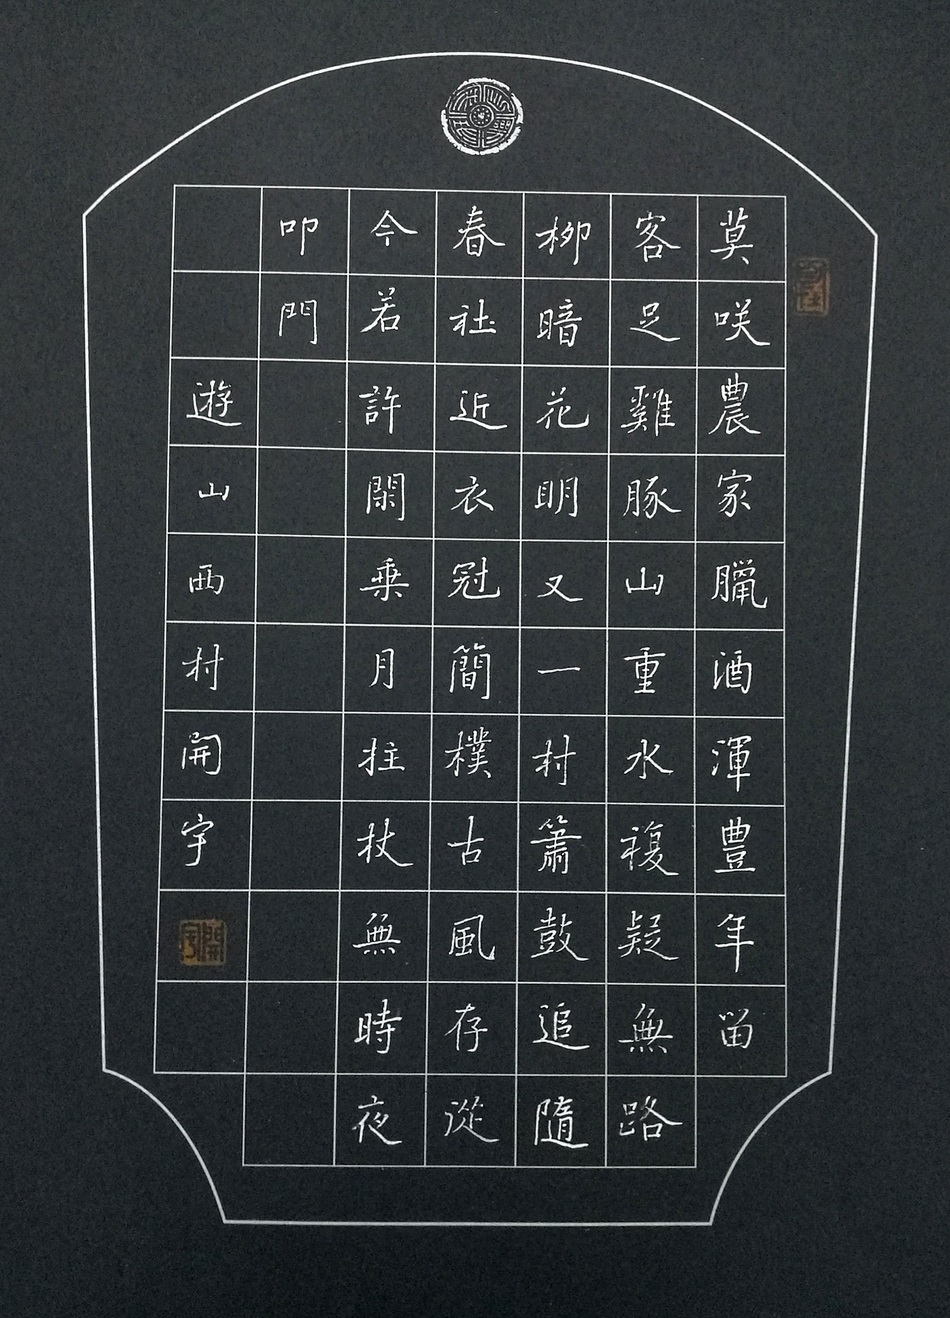 莫咲農家臘酒渾豊年畄
客足雞豚山重水複疑無路
柳暗花明又一村簫鼓追隨
春社近衣冠簡樸古風存從
今若許閑乗月拄杖無時夜
叩門
遊山西村開宇
開宇